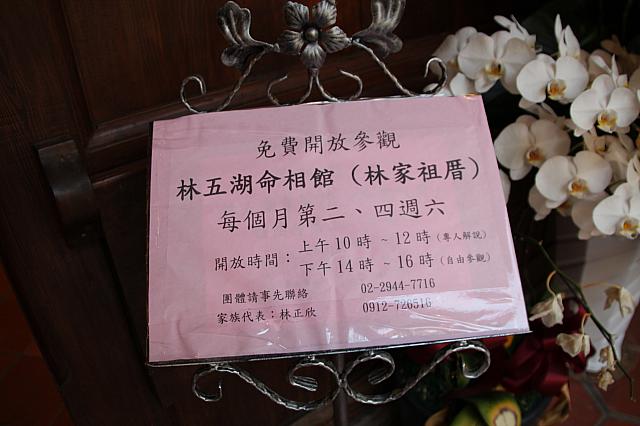 免費開放參觀
林五湖命相館（林家祖厝）
每個月第二、四週六
開放時間：上午10時～12時（專人解說）
下午14時～16時（自由參觀）
團體請事先聯絡 02-2944-7716
家族代表：林正欣 0912-726516